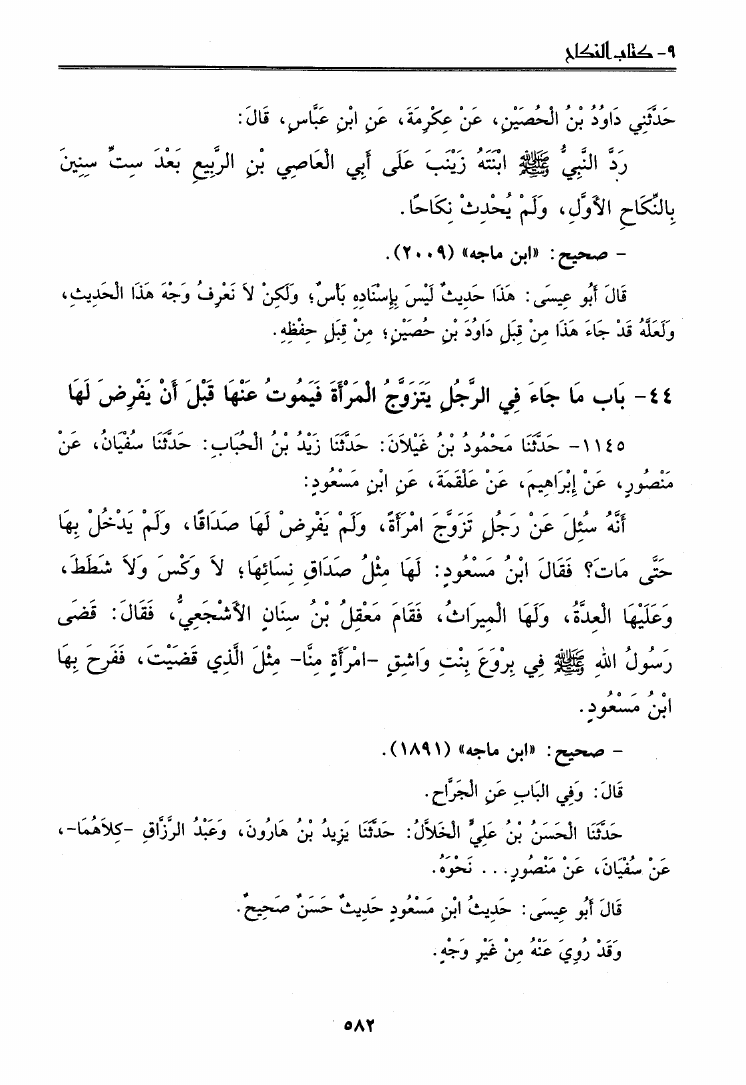 ٩- كتاب النكاح
حَدَّثَنِي دَاوُدُ بْنُ الْحُصَيْنِ، عَنْ عِكْرِمَةَ، عَنِ ابْنِ عَبَّاسٍ، قَالَ:
رَدَّ النَّبِيُّ ﷺ ابْنَتَهُ زَيْنَبَ عَلَى أَبِي الْعَاصِي بْنِ الرَّبِيعِ بَعْدَ سِتِّ سِنِينَ
بِالنِّكَاحِ الأَوَّلِ، وَلَمْ يُحْدِثْ نِكَاحًا.
- صحيح: «ابن ماجه» (٢٠٠٩).
قَالَ أَبُو عِيسَى: هَذَا حَدِيثٌ لَيْسَ بِإِسْنَادِهِ بَأْسٌ؛ وَلَكِنْ لاَ نَعْرِفُ وَجْهَ هَذَا الْحَدِيثِ،
وَلَعَلَّهُ قَدْ جَاءَ هَذَا مِنْ قِبَلِ دَاوُدَ بْنِ حُصَيْنٍ؛ مِنْ قِبَلِ حِفْظِهِ.
٤٤- بَاب مَا جَاءَ فِي الرَّجُلِ يَتَزَوَّجُ الْمَرْأَةَ فَيَمُوتُ عَنْهَا قَبْلَ أَنْ يَفْرِضَ لَهَا
١١٤٥- حَدَّثَنَا مَحْمُودُ بْنُ غَيْلاَنَ: حَدَّثَنَا زَيْدُ بْنُ الْحُبَابِ: حَدَّثَنَا سُفْيَانُ، عَنْ
مَنْصُورٍ، عَنْ إِبْرَاهِيمَ، عَنْ عَلْقَمَةَ، عَنِ ابْنِ مَسْعُودٍ:
أَنَّهُ سُئِلَ عَنْ رَجُلٍ تَزَوَّجَ امْرَأَةً، وَلَمْ يَفْرِضْ لَهَا صَدَاقًا، وَلَمْ يَدْخُلْ بِهَا
حَتَّى مَاتَ؟ فَقَالَ ابْنُ مَسْعُودٍ: لَهَا مِثْلُ صَدَاقِ نِسَائِهَا؛ لاَ وَكْسَ وَلاَ شَطَطَ،
وَعَلَيْهَا الْعِدَّةُ، وَلَهَا الْمِيرَاثُ، فَقَامَ مَعْقِلُ بْنُ سِنَانٍ الأَشْجَعِيُّ، فَقَالَ: قَضَى
رَسُولُ اللهِ ﷺ فِي بِرْوَعَ بِنْتِ وَاشِقٍ -امْرَأَةٍ مِنَّا- مِثْلَ الَّذِي قَضَيْتَ، فَفَرِحَ بِهَا
ابْنُ مَسْعُودٍ.
- صحيح: «ابن ماجه» (١٨٩١).
قَالَ: وَفِي الْبَابِ عَنِ الْجَرَّاحِ.
حَدَّثَنَا الْحَسَنُ بْنُ عَلِيٍّ الْخَلاَّلُ: حَدَّثَنَا يَزِيدُ بْنُ هَارُونَ، وَعَبْدُ الرَّزَّاقِ -كِلاَهُمَا-،
عَنْ سُفْيَانَ، عَنْ مَنْصُورٍ... نَحْوَهُ.
قَالَ أَبُو عِيسَى: حَدِيثُ ابْنِ مَسْعُودٍ حَدِيثٌ حَسَنٌ صَحِيحٌ.
وَقَدْ رُوِيَ عَنْهُ مِنْ غَيْرِ وَجْهٍ.
٥٨٢